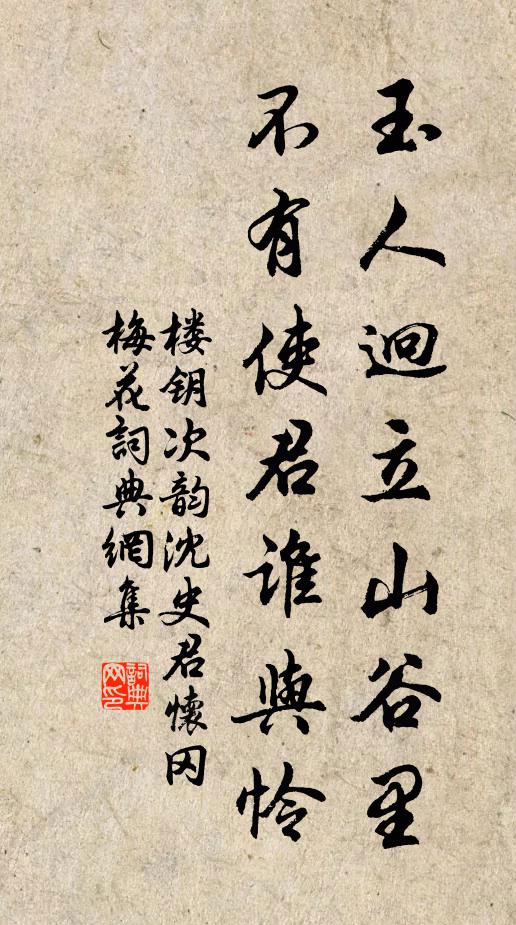 玉人迥立山谷里
不有使君谁與怜
楼钥次韵沈史君懷冈
梅花詞典網集
詞典
网印